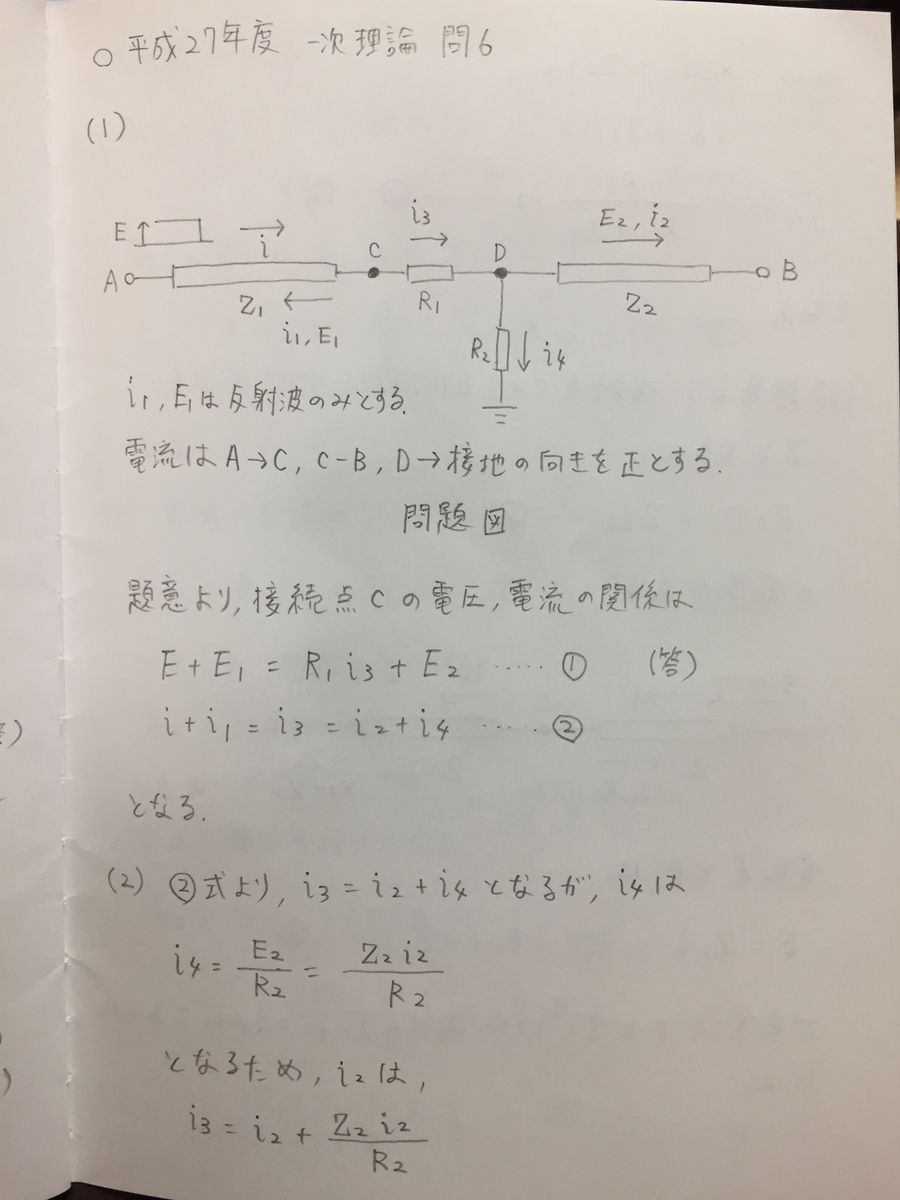 ○ 平成27年度 一次理論 問6
(1)
E i
A C i3 D E2, i2 B
Z1 R1 Z2
i1, E1 R2 i4
i1, E1は反射波のみとする.
電流はA→C, C-B, D→接地の向きを正とする.
問題図
題意より, 接続点Cの電圧, 電流の関係は
E + E1 = R1 i3 + E2 ····· ① (答)
i + i1 = i3 = i2 + i4 ····· ②
となる.
(2) ②式より, i3 = i2 + i4 となるが, i4は
i4 = E2/R2 = Z2 i2/R2
となるため, i2は,
i3 = i2 + Z2 i2/R2